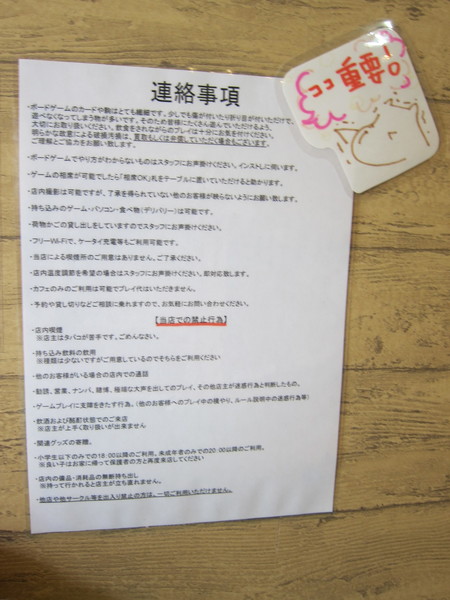 ココ重要!
連絡事項
・ボードゲームのカードや駒はとても繊細です。少しでも傷が付いたり折り目が付いただけで、
遊べなくなってしまう物が多いです。そのため皆様にたくさん遊んでいただけるよう、
大切にお取り扱いください。飲食をされながらのプレイは十分にお気を付けください。
明らかな故意による破損汚損は、買取もしくは弁償していただく場合もございます。
ご理解とご協力をお願い致します。
・ボードゲームでやり方がわからないものはスタッフにお声掛けください。インストしに伺います。
・ゲームの相席が可能でしたら「相席OK」札をテーブルに置いていただけると助かります。
・店内撮影は可能ですが、了承を得られていない他のお客様が映らないようにお願い致します。
・持ち込みのゲーム・パソコン・食べ物(デリバリー)は可能です。
・荷物かごの貸し出しをしていますのでスタッフにお声掛けください。
・フリーWi-Fiで、ケータイ充電等もご利用可能です。
・当店による喫煙所のご用意はありません。ご了承ください。
・店内温度調節を希望の場合はスタッフにお声掛けください。即対応致します。
・カフェのみのご利用は可能でプレイ代はいただきません。
・予約や貸し切りなどご相談に乗れますので、お気軽にお問い合わせください。
【当店での禁止行為】
・店内喫煙
※店主はタバコが苦手です。ごめんなさい。
・持ち込み飲料の飲用
※種類は少ないですがご用意しているのでそちらをご利用ください
・他のお客様がいる場合の店内での通話
・勧誘、営業、ナンパ、賭博、極端な大声を出してのプレイ、その他店主が迷惑行為と判断したもの。
・ゲームプレイに支障をきたす行為。(他のお客様へのプレイ中の横やり、ルール説明中の迷惑行為等)
・飲酒および酩酊状態でのご来店
※店主が上手く取り扱いが出来ません
・関連グッズの寄贈。
・小学生以下のみでの18:00以降のご利用。未成年者のみでの20:00以降のご利用。
※良い子はお家に帰って保護者の方と再度来店してください
・店内の備品・消耗品の無断持ち出し
※持って行かれると店主が立ち直れません。
・他店や他サークル等を出入り禁止の方は、一切ご利用いただけません。